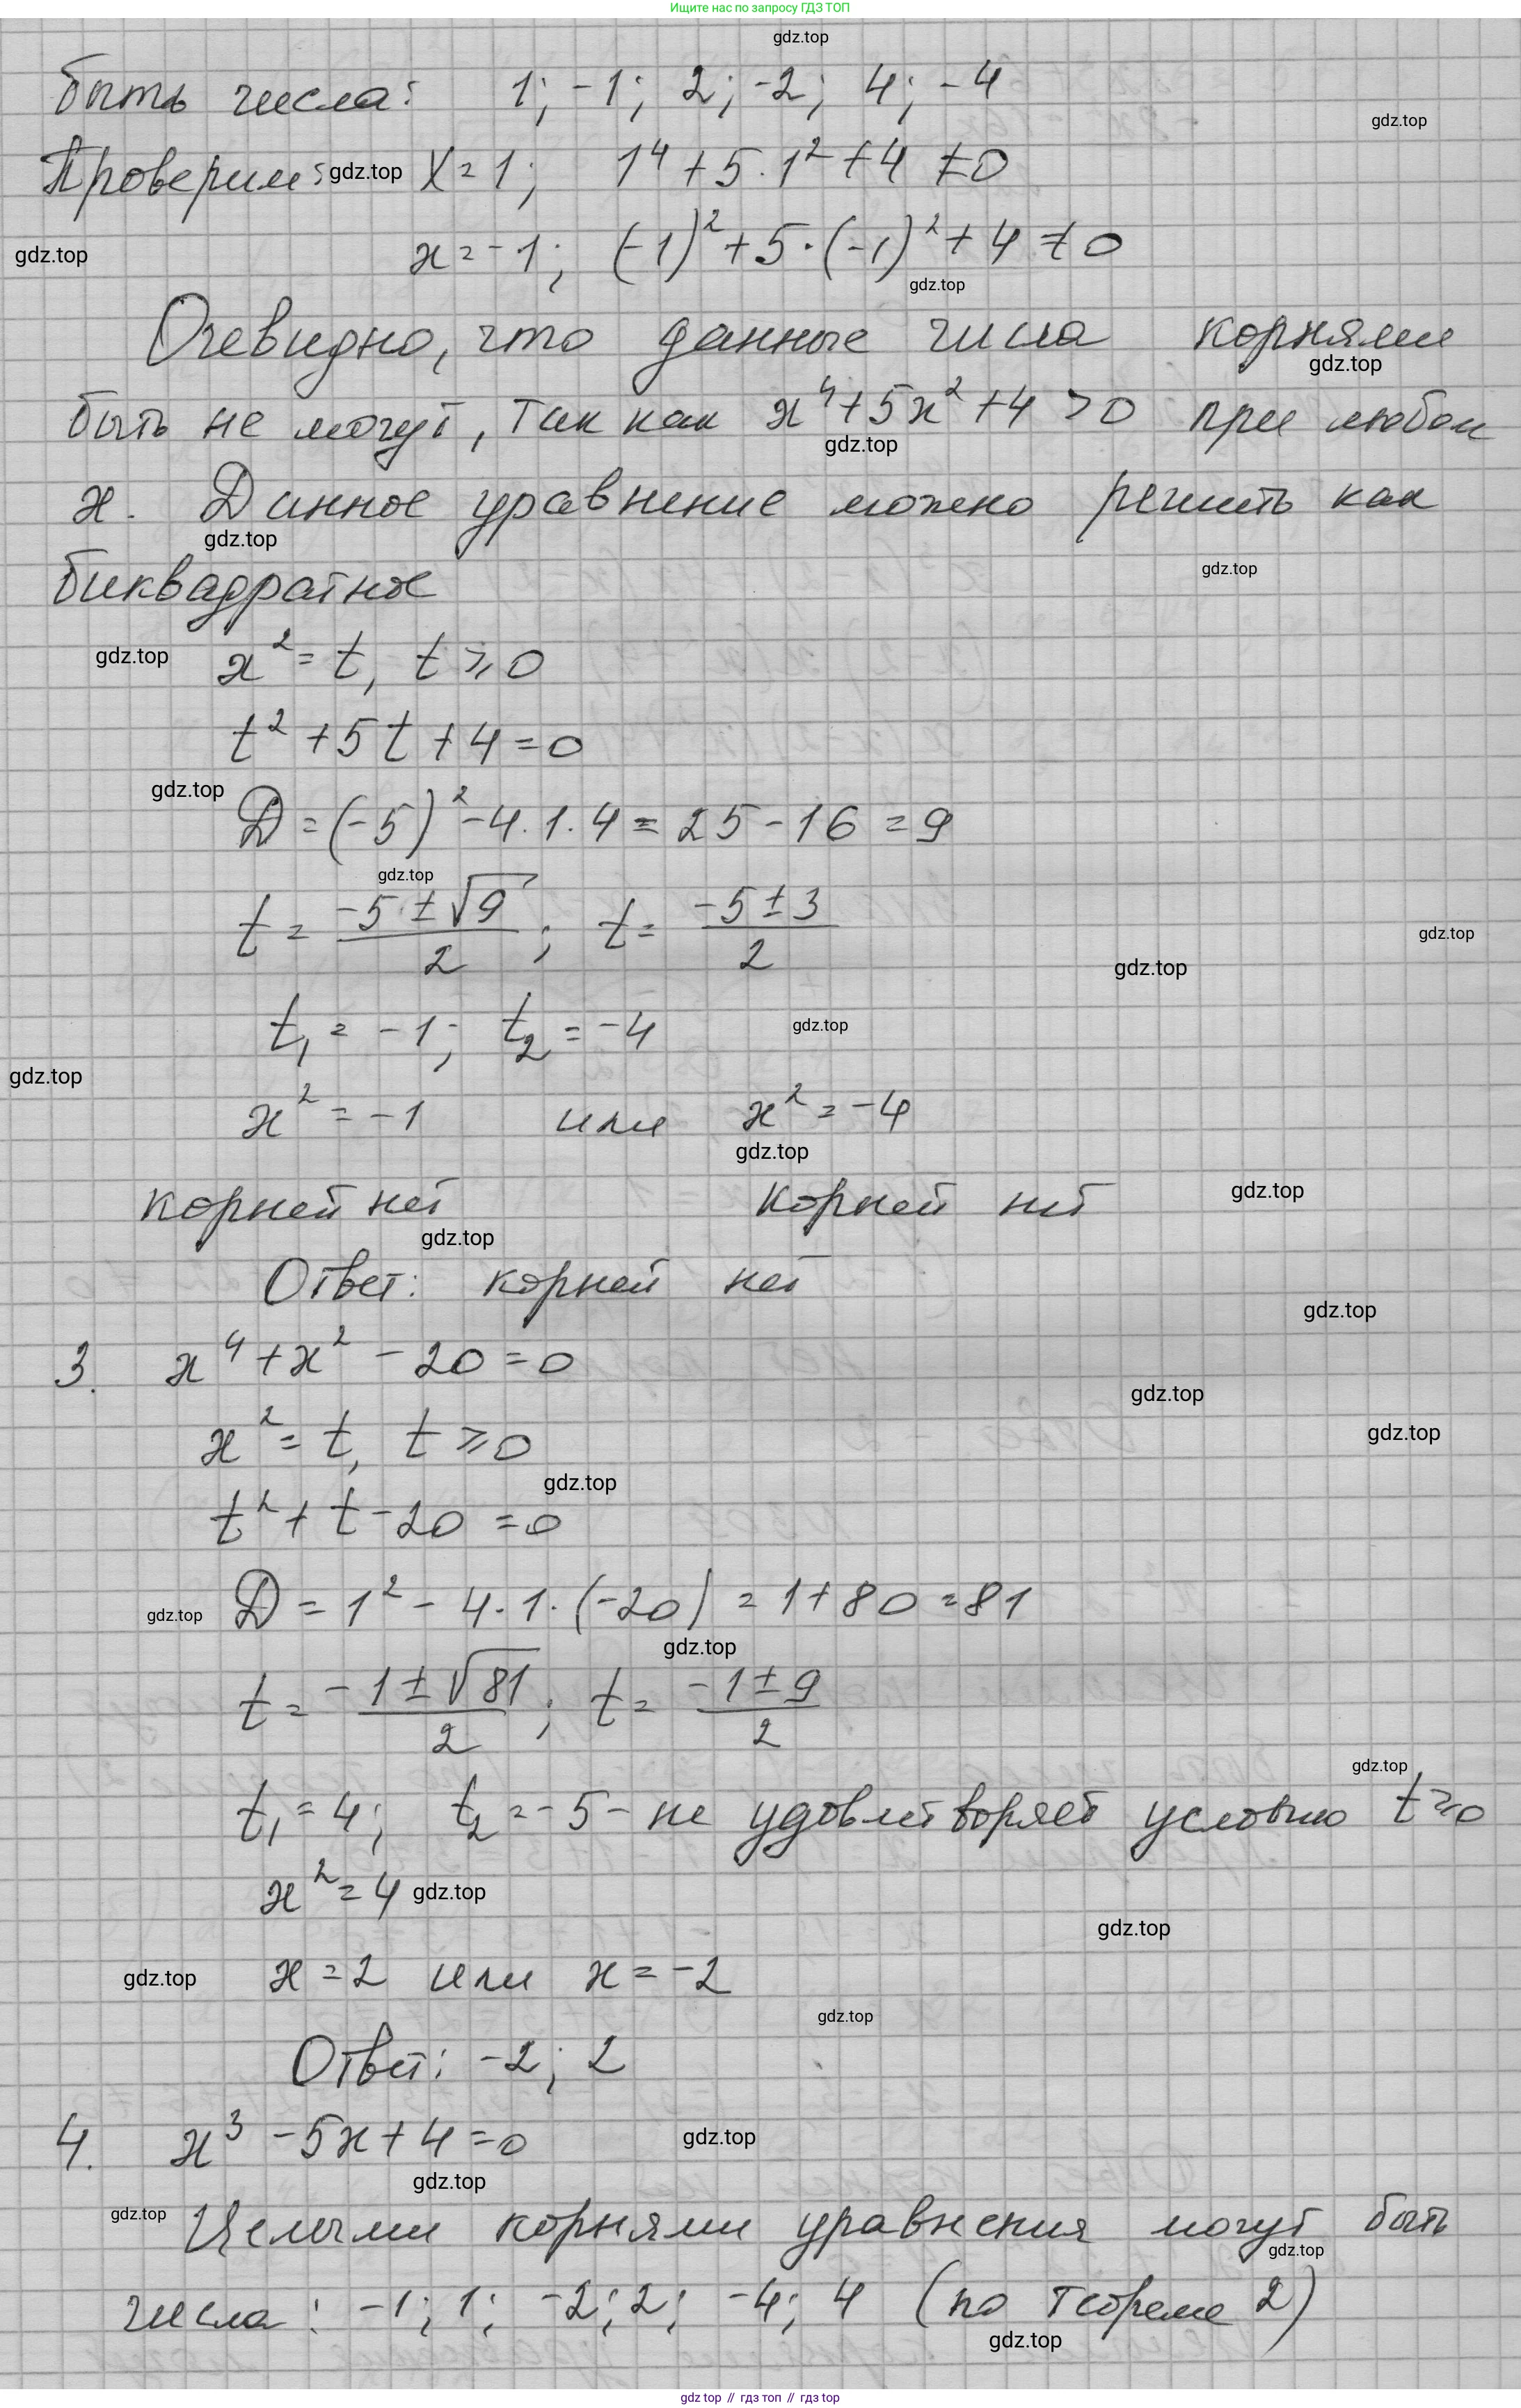 Ищите нас по запросу ГДЗ ТОП
gdz.top
быть числа: 1; -1; 2; -2; 4; -4
gdz.top
Проверим: gdz.top x=1; 1⁴+5·1²+4≠0
gdz.top x=-1; (-1)²+5·(-1)²+4≠0
gdz.top
Очевидно, что данные числа корнями
gdz.top
быть не могут, так как x⁴+5x²+4>0 при любом
gdz.top
x. Данное уравнение можно решить как
gdz.top
gdz.top
биквадратное
gdz.top x²=t, t⩾0
t²+5t+4=0
gdz.top
D=(-5)²-4·1·4=25-16=9
gdz.top
t=(-5±√9)/2; t=(-5±3)/2
gdz.top
gdz.top
t₁=-1; t₂=-4 gdz.top
gdz.top
x²=-1 или x²=-4
gdz.top
корней нет корней нет gdz.top
gdz.top
Ответ: корней нет
gdz.top
3. x⁴+x²-20=0
gdz.top
x²=t, t⩾0 gdz.top
gdz.top
t²+t-20=0
gdz.top D=1²-4·1·(-20)=1+80=81
gdz.top
t=(-1±√81)/2; t=(-1±9)/2
gdz.top
t₁=4; t₂=-5- не удовлетворяет условию t⩾0
x²=4 gdz.top
gdz.top
gdz.top x=2 или x=-2
gdz.top
Ответ: -2; 2
4. x³-5x+4=0 gdz.top
gdz.top
gdz.top
Целыми корнями уравнения могут быть
gdz.top
числа: -1; 1; -2; 2; -4; 4 (по теореме 2)
gdz.top
gdz top // гдз топ // gdz top